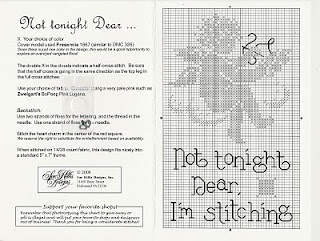 Not tonight Dear ...
X Your choice of color
Cover model used Presencia 1967 (similar to DMC 326)
Since there is just one color in the design, this would be a good opportunity to
explore an overdyed variegated floss!
The double X in the clouds indicate a half cross stitch. Be sure
that the half cross is going in the same direction as the top leg in
the full cross stitches.
Use your choice of fabric. Consider using a very pale pink such as
Zweigart's BoPeep Pink Lugana.
Backstitch:
Use two strands of floss for the lettering, and the thread in the
needle. Use one strand of floss
Stitch the heart charm in the center of the red square.
We reserve the right to substitute the embellishment based on availability.
When stitched on 14/28 count fabric, this design fits nicely into
a standard 5" x 7" frame.
Sue Hillis Designs
© 2008
Sue Hillis Designs, Inc.
Support your favorite shops!
Remember that photocopying this chart to give away or
sell is illegal and will put your favorite shops and designers
out of business. Thank you for being a considerate stitcher!
Not tonight
Dear,
I'm stitching